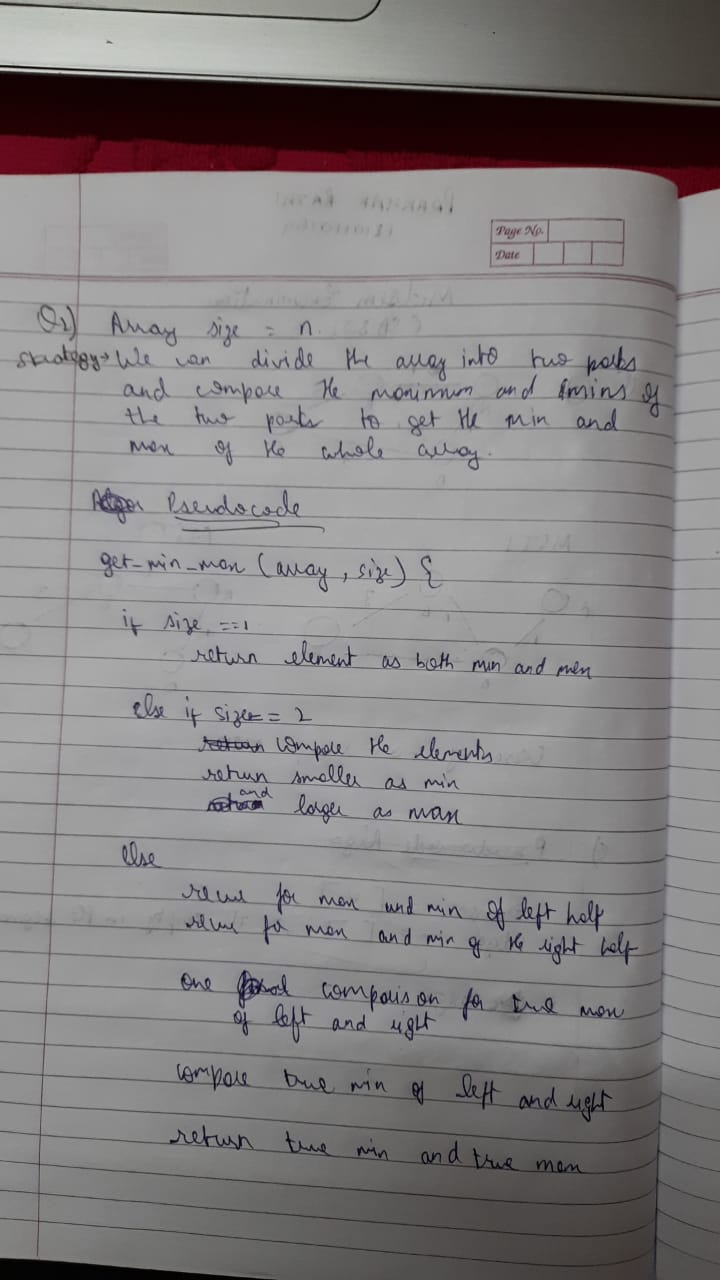 Page No.
Date
Q2) Array size = n.
Strategy → We can divide the array into two parts
and compare the maximum and mins of
the two parts to get the min and
max of the whole array.
Pseudocode
get_min_max (array, size) {
if size ==1
return element as both min and max
else if size == 2
compare the elements
return smaller as min
and larger as max
Else
recur for max and min of left half
recur for max and min of the right half
one comparison for true max
of left and right
compare true min of left and right
return true min and true max